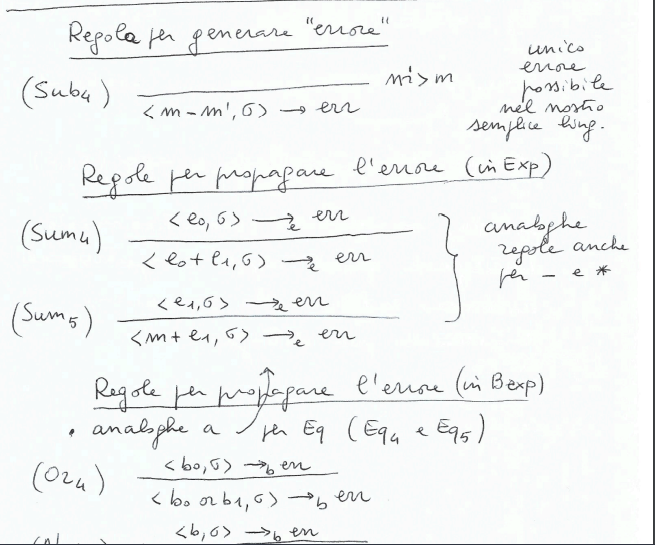 Regola per generare "errore"
(Sub4) <m - m', σ> → err m' > m
unico
errore
possibile
nel nostro
semplice ling.
Regole per propagare l'errore (in Exp)
(Sum4) <e0, σ> →e err
<e0 + e1, σ> →e err
(Sum5) <e1, σ> →e err
<m + e1, σ> →e err
analoghe
regole anche
per - e *
Regole per propagare l'errore (in Bexp)
• analoghe a ↑ per Eq (Eq4 e Eq5)
(Or4) <b0, σ> →b err
<b0 or b1, σ> →b err
<b, σ> →b err